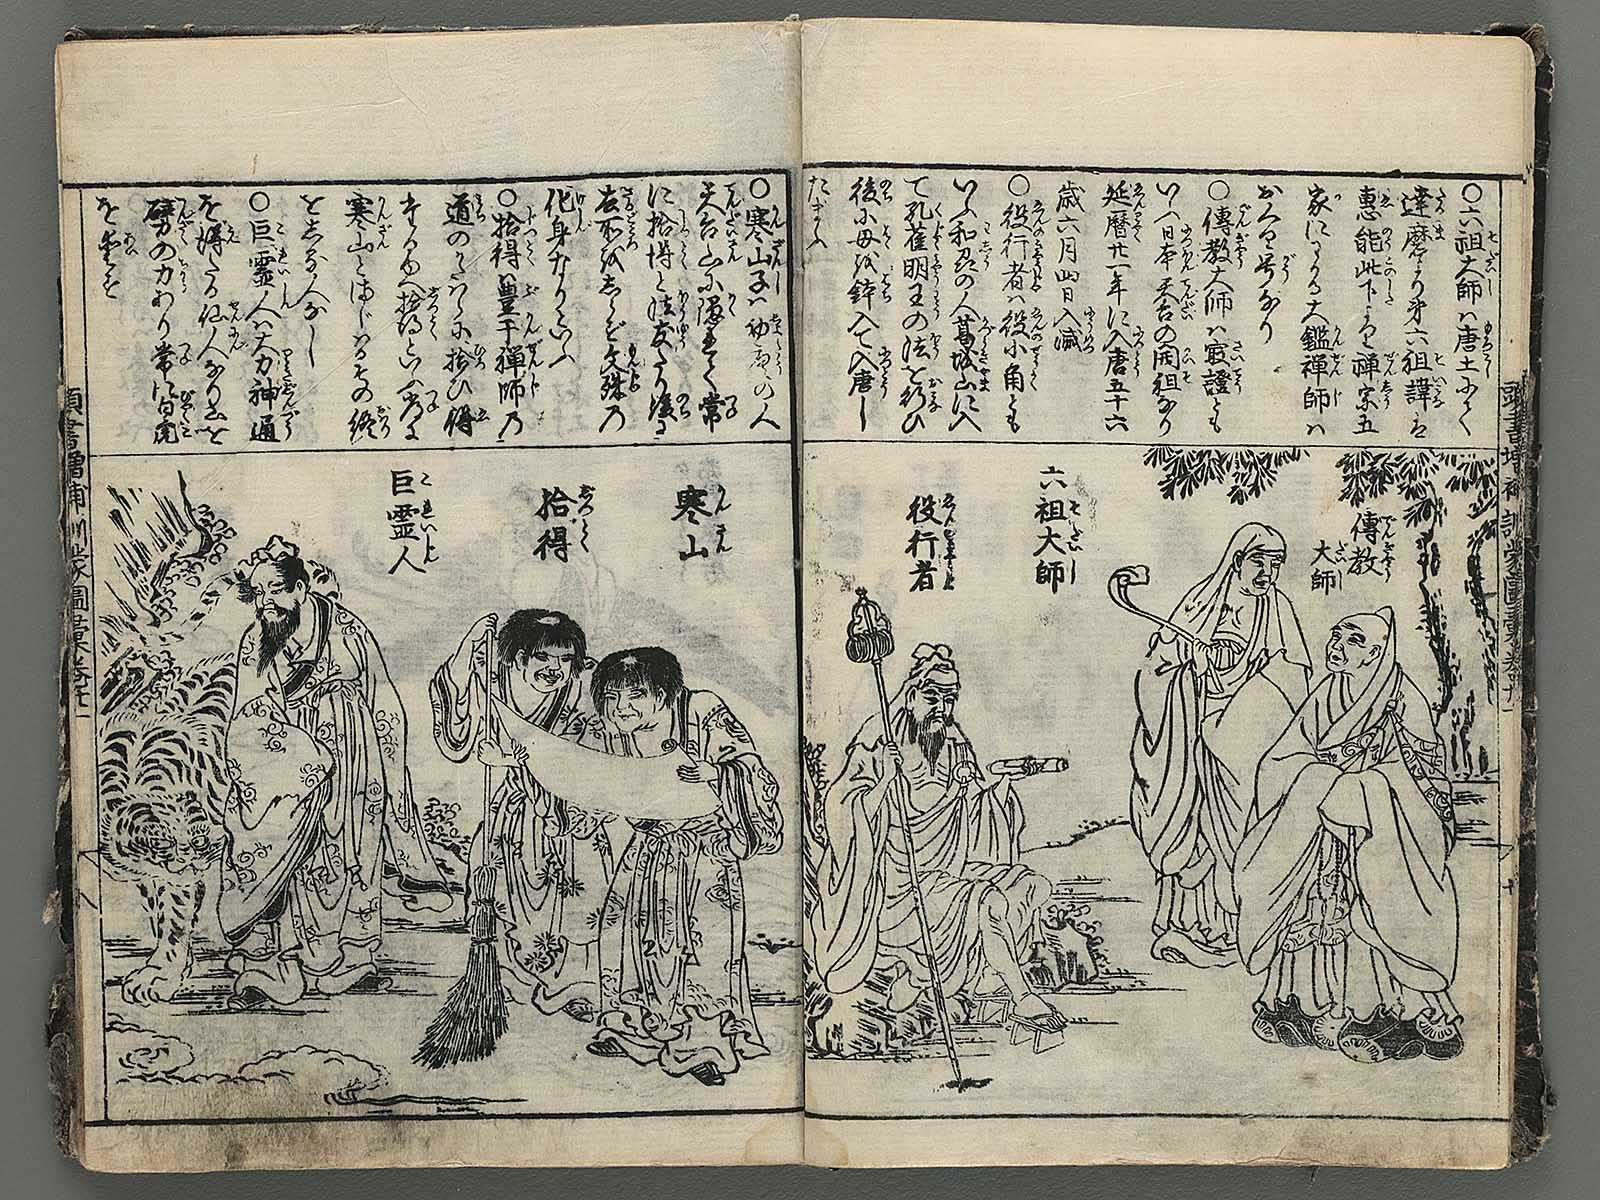 〇六祖大師ハ唐土にて
達磨より第六祖諱は
惠能此下より禅宗五
家にわかる大鑑禅師ハ
おくり号なり
〇傳教大師ハ最證とも
いへ日本天台の開祖なり
延暦廿一年に入唐五十六
歳六月四日入滅
〇役行者ハ役小角とも
いふ和州の人葛城山に入
て孔雀明王の法を行ひ
後に母を鉢入て入唐し
たまふ
傳教大師
六祖大師
役行者
〇寒山子ハ
の人
天台山に隠れて常
に拾得と法友たり後に
在所を志らず文殊乃
化身なりといふ
〇拾得ハ豊干禅師乃
道のかたハらに拾ひ得
寒山とまじハる其終
を志る人なし
〇巨霊人ハ大力神通
を得たる仙人なり山を
劈の力あり常に白虎
を愛す
寒山
拾得
巨霊人
頭書増補訓蒙圖彙巻
頭書増補訓蒙圖彙巻